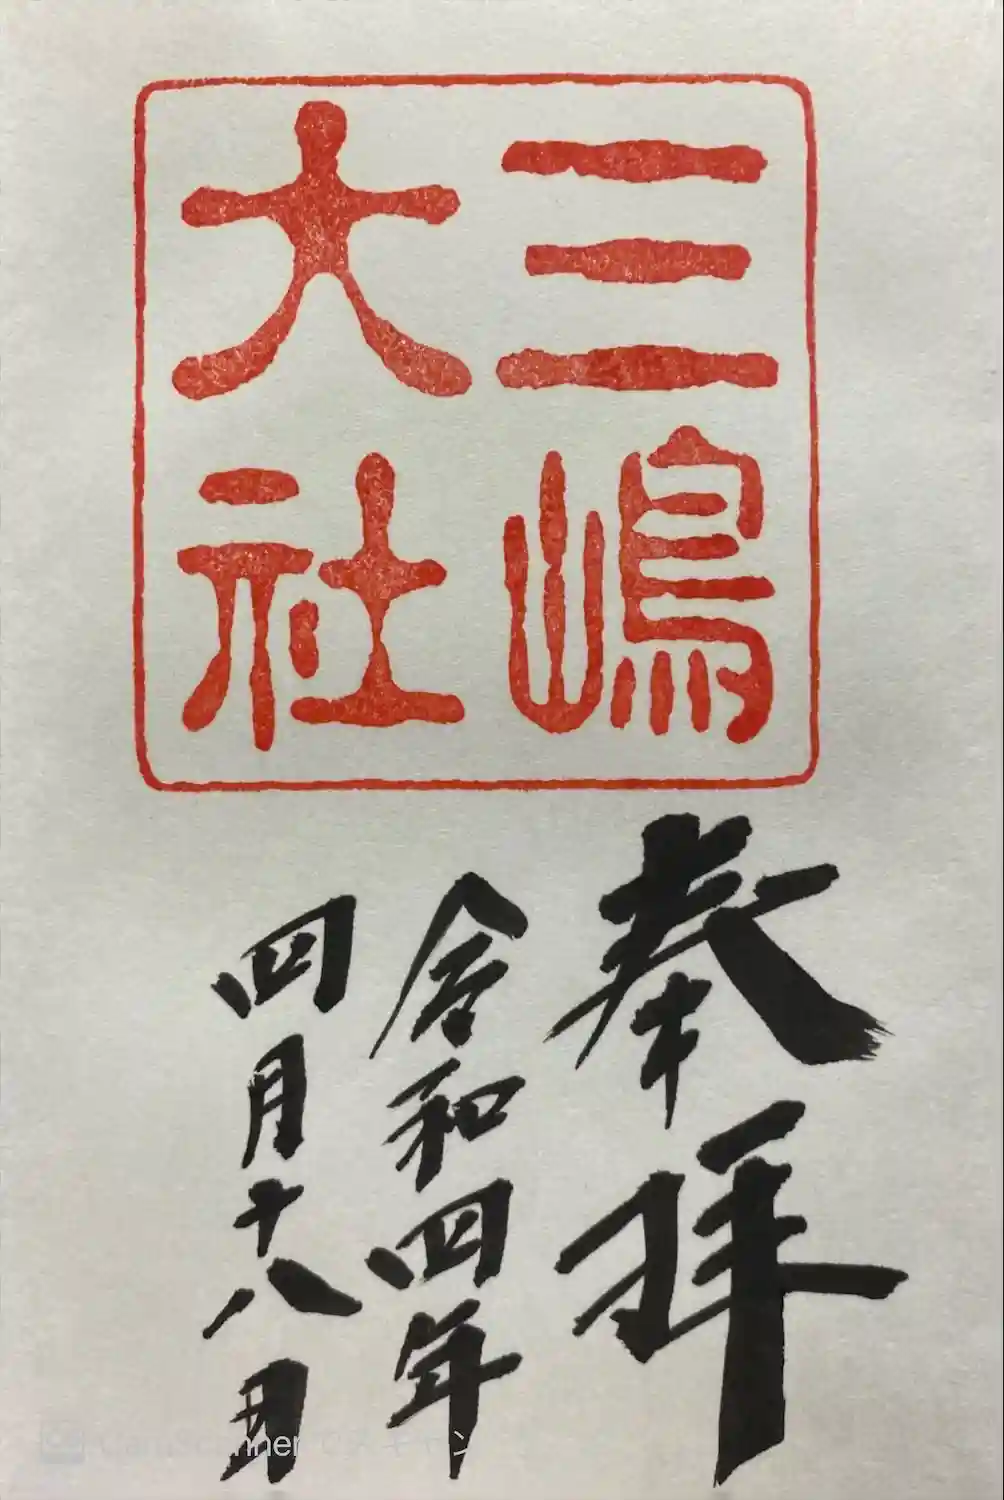 三嶋
大社
奉拝
令和四年
四月十八日